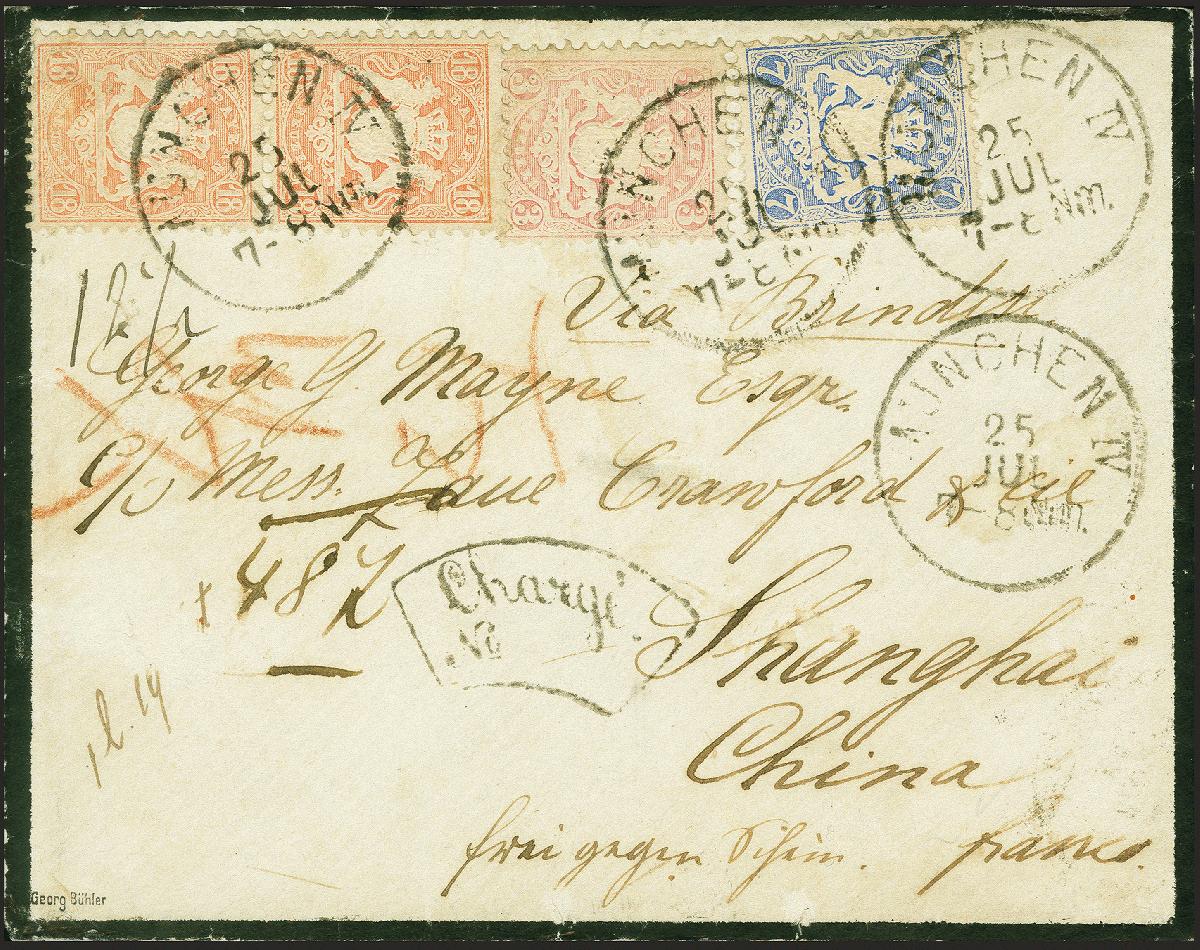 18 18 18 18 3 3 7 7
18 18 3 3 7 7
MÜNCHEN IV
25
JUL
7-8 Nm.
MÜNCHEN
25
JUL
7-8 Nm.
MÜNCHEN IV
25
JUL
7-8 Nm.
Via Brindisi
George G. Mayne Esqr.
MÜNCHEN IV
25
JUL
7-8 Nm.
c/o Mess. Crawford & Cie
487
Chargé
No
Shanghai
China
frei gegen Schein. franco.
Georg Bühler